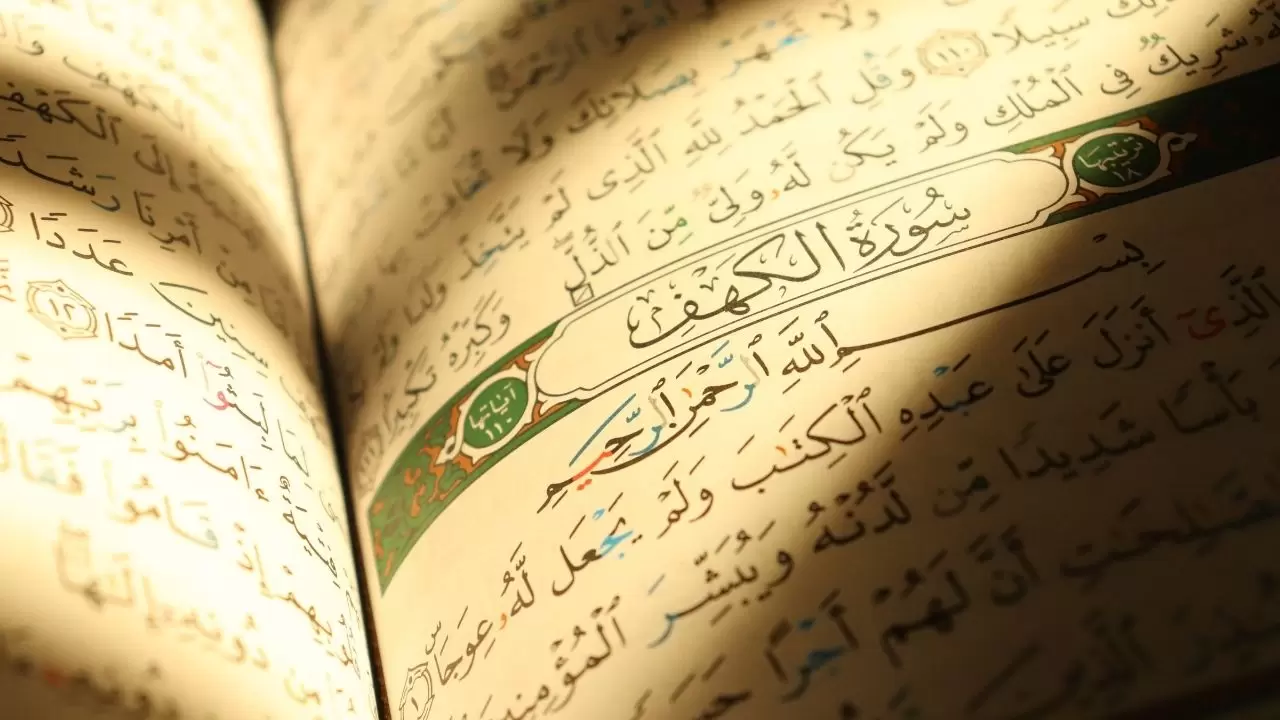 وَلَا تَجْهَرْ بِصَلَاتِكَ وَلَا تُخَافِتْ
سَبِيلًا ١١٠ وَقُلِ ٱلْحَمْدُ لِلَّهِ ٱلَّذِى لَمْ يَتَّخِذْ وَلَدًا وَلَمْ
شَرِيكٌ فِى ٱلْمُلْكِ وَلَمْ يَكُن لَّهُۥ وَلِىٌّ مِّنَ ٱلذُّلِّ وَكَبِّرْهُ تَكْبِيرًا
ترتيبها ١٨ سُورَةُ الكَهْفِ آياتها ١١٠
بِسْمِ ٱللَّهِ ٱلرَّحْمَٰنِ ٱلرَّحِيمِ
ٱلَّذِىٓ أَنزَلَ عَلَىٰ عَبْدِهِ ٱلْكِتَٰبَ وَلَمْ يَجْعَل لَّهُۥ عِوَجَا ١
بَأْسًا شَدِيدًا مِّن لَّدُنْهُ وَيُبَشِّرَ ٱلْمُؤْمِنِينَ
ٱلصَّٰلِحَٰتِ أَنَّ لَهُمْ أَجْرًا
إِلَى ٱلْكَهْفِ
مِنْ أَمْرِنَا رَشَدًا
سِنِينَ عَدَدًا
لِمَا لَبِثُوٓا۟ أَمَدًا ١٢
فِتْيَةٌ ءَامَنُوا۟ بِرَبِّهِمْ
إِذْ قَامُوا۟
مِن دُونِهِۦٓ إِلَٰهًا